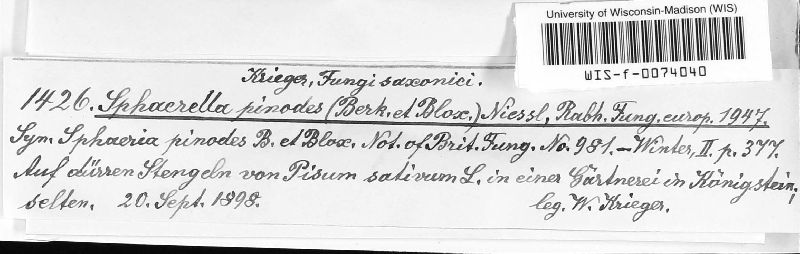 University of Wisconsin-Madison (WIS)
WIS-f-0074040
Krieger, Fungi saxonici.
1426. Sphaerella pinodes (Berk. et Blox.) Niessl, Rabh. Fung. europ. 1947.
Sym. Sphaeria pinodes B. et Blox. Not. of Brit. Fung. No. 981. – Winter, II. p. 377.
Auf dürren Stengeln von Pisum sativum L. in einer Gärtnerei in Königstein;
selten. 20. Sept. 1898. leg. W. Krieger.